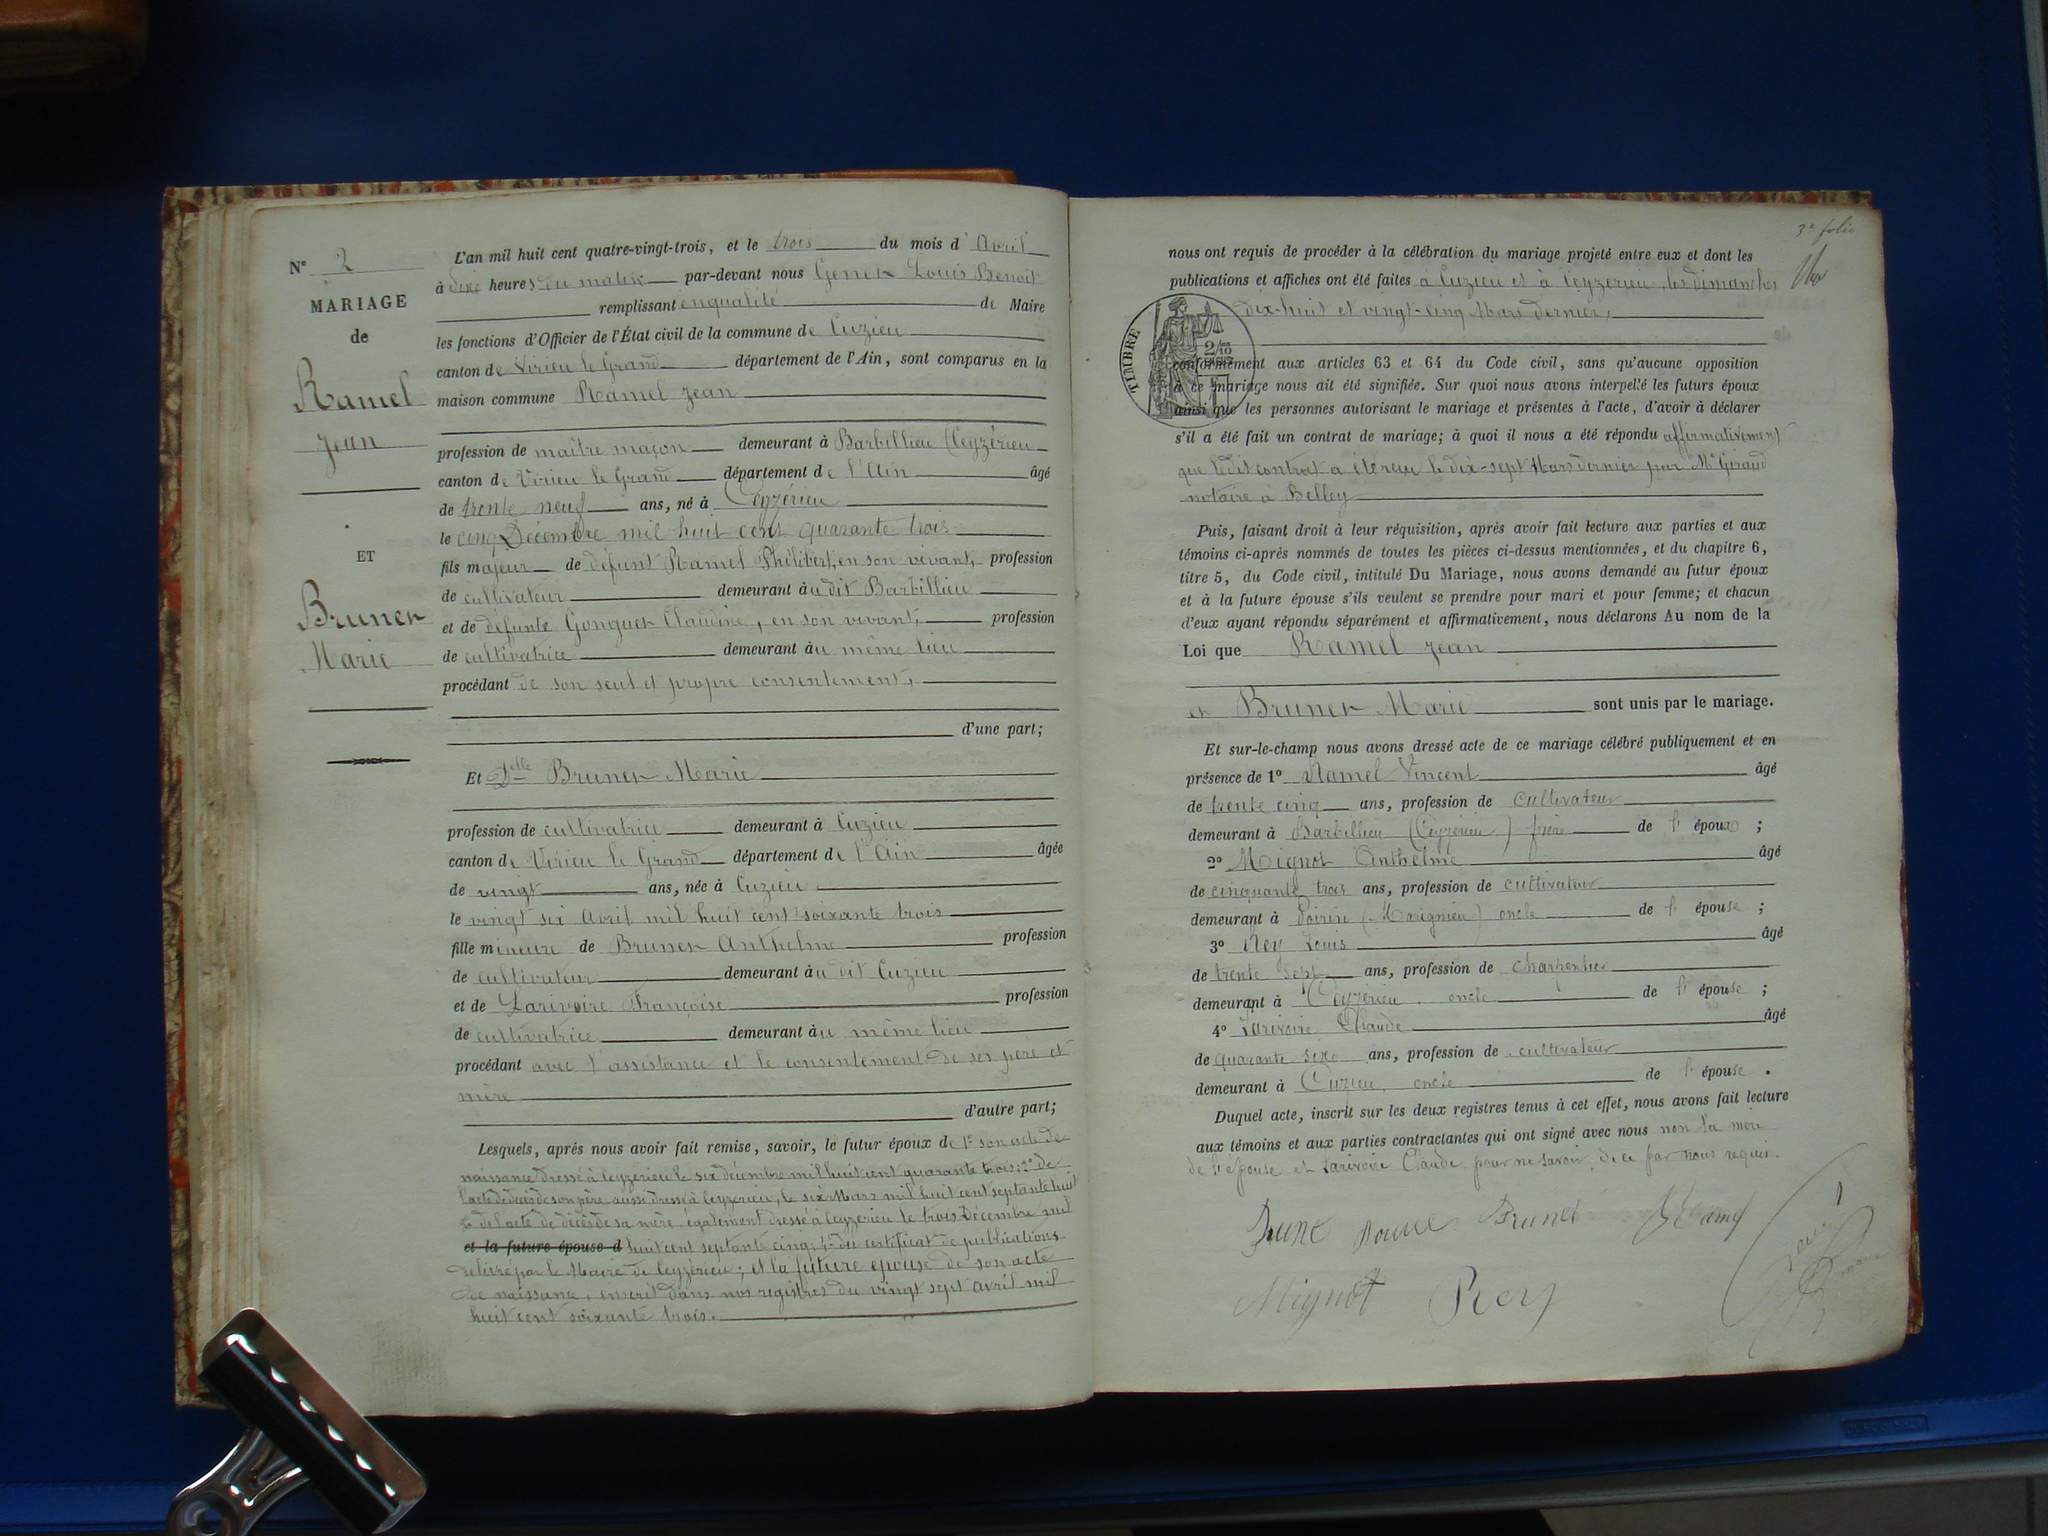 N° 2
MARIAGE
de
Ramel
Jean
ET
Brunet
Marie
L'an mil huit cent quatre-vingt-trois, et le trois du mois d'Avril
à dix heures du matin par-devant nous Genet Louis Benoit
remplissant en qualité de Maire
les fonctions d'Officier de l'État civil de la commune de Cuzieu
canton de Virieu le Grand département de l'Ain, sont comparus en la
maison commune Ramel Jean
profession de maître maçon demeurant à Barbillieu (Ceyzérieu
canton de Virieu le Grand département de l'Ain âgé
de trente neuf ans, né à Ceyzérieu
le cinq Décembre mil huit cent quarante trois
fils majeur de défunt Ramel Philibert, en son vivant, profession
de cultivateur demeurant au dit Barbillieu
et de défunte Gonguet Claudine, en son vivant, profession
de cultivatrice demeurant au même lieu
procédant de son seul et propre consentement,
d'une part;
Et Dlle Brunet Marie
profession de cultivatrice demeurant à Cuzieu
canton de Virieu le Grand département de l'Ain âgée
de vingt ans, née à Cuzieu
le vingt six Avril mil huit cent soixante trois
fille mineure de Brunet Anthelme profession
de cultivateur demeurant au dit Cuzieu
et de Larivoire Françoise profession
de cultivatrice demeurant au même lieu
procédant avec l'assistance et le consentement de ses père et
mère
d'autre part;
Lesquels, après nous avoir fait remise, savoir, le futur époux de 1° son acte de
naissance dressé à Ceyzérieu le six décembre mil huit cent quarante trois; 2° de
l'acte de décès de son père aussi dressé à Ceyzérieu, le six Mars mil huit cent septante huit
3° de l'acte de décès de sa mère, également dressé à Ceyzérieu le trois Décembre mil
et la future épouse d huit cent septante cinq; 4° du certificat de publications
délivré par le Maire de Ceyzérieu; et la future épouse de son acte
de naissance, inscrit dans nos registres du vingt sept avril mil
huit cent soixante trois.
3e folio
nous ont requis de procéder à la célébration du mariage projeté entre eux et dont les
publications et affiches ont été faites à Cuzieu et à Ceyzérieu, les dimanches
dix-huit et vingt-cinq Mars dernier,
TIMBRE
2/10
conformément aux articles 63 et 64 du Code civil, sans qu'aucune opposition
à ce mariage nous ait été signifiée. Sur quoi nous avons interpellé les futurs époux
ainsi que les personnes autorisant le mariage et présentes à l'acte, d'avoir à déclarer
s'il a été fait un contrat de mariage; à quoi il nous a été répondu affirmativement
que ledit contrat a été reçu le dix-sept Mars dernier par Me Giraud
notaire à Belley
Puis, faisant droit à leur réquisition, après avoir fait lecture aux parties et aux
témoins ci-après nommés de toutes les pièces ci-dessus mentionnées, et du chapitre 6,
titre 5, du Code civil, intitulé Du Mariage, nous avons demandé au futur époux
et à la future épouse s'ils veulent se prendre pour mari et pour femme; et chacun
d'eux ayant répondu séparément et affirmativement, nous déclarons Au nom de la
Loi que Ramel Jean
et Brunet Marie sont unis par le mariage.
Et sur-le-champ nous avons dressé acte de ce mariage célébré publiquement et en
présence de 1° Ramel Vincent âgé
de trente cinq ans, profession de cultivateur
demeurant à Barbillieu (Ceyzérieu) frère de l'époux ;
2° Mignot Anthelme âgé
de cinquante trois ans, profession de cultivateur
demeurant à Poirin (Marignieu) oncle de l'épouse ;
3° Rey Louis âgé
de trente sept ans, profession de charpentier
demeurant à Ceyzérieu, oncle de l'épouse ;
4° Larivoire Claude âgé
de quarante six ans, profession de cultivateur
demeurant à Cuzieu, oncle de l'épouse .
Duquel acte, inscrit sur les deux registres tenus à cet effet, nous avons fait lecture
aux témoins et aux parties contractantes qui ont signé avec nous non la mère
de l'épouse et Larivoire Claude, pour ne savoir, de ce par nous requis.
Brunet
Ramel
Mignot Rey